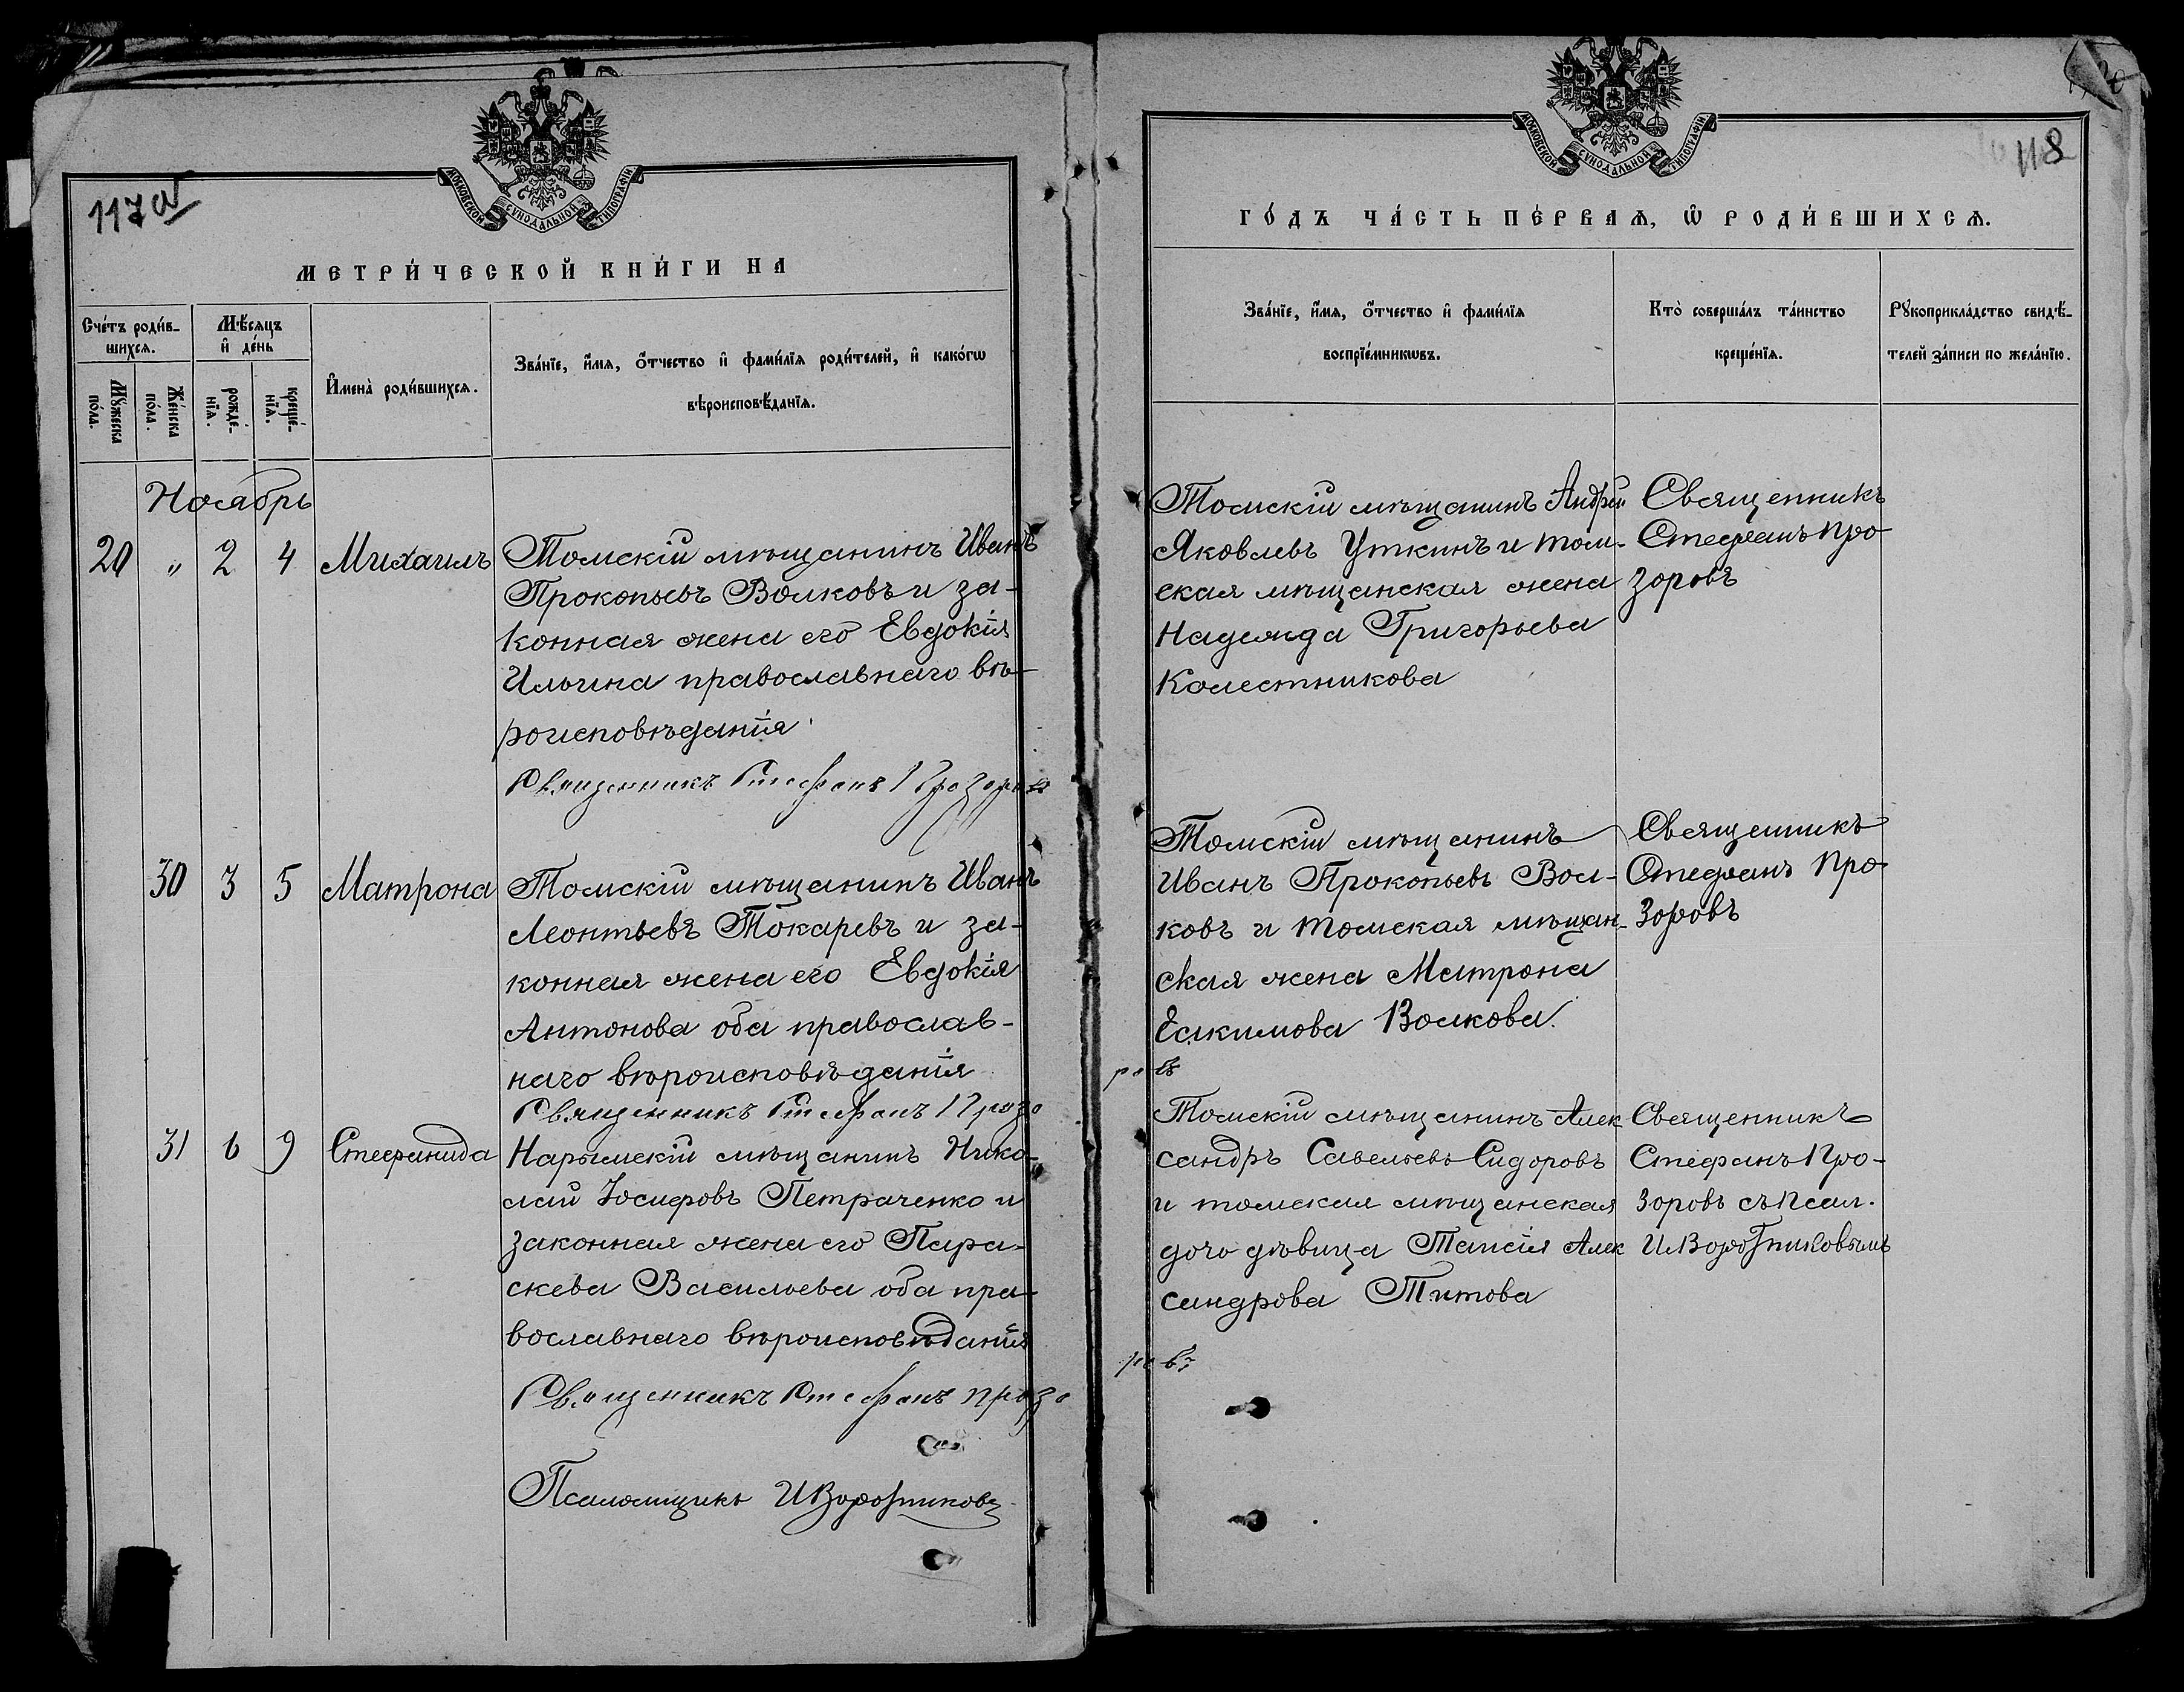 117 а
МОСКОВСКОЙ СѴНОДАЛЬНОЙ ТИПОГРАФІИ
МЕТРИ́ЧЕСКОЙ КНИ́ГИ НА
Сче́тъ роди́в-
шихсѧ.
Мѣ́сѧцъ
и҆ де́нь
Мꙋ́жеска
по́ла.
Же́нска
по́ла.
рожде́-
нїѧ.
креще́-
нїѧ.
И҆мена̀ роди́вшихсѧ.
Зва́нїе, и҆́мѧ, ѻ҆́тчество и҆ фами́лїѧ роди́телей, и҆ како́гѡ
вѣроисповѣ́данїѧ.
Ноябрь
20 " 2 4 Михаилъ
Томскій мѣщанинъ Иванъ
Прокопьевъ Волковъ и за-
конная жена его Евдокія
Ильина православнаго вѣ-
роисповѣданія
Священникъ Стефанъ Прозоровъ
30 3 5 Матрона
Томскій мѣщанинъ Иванъ
Леонтьевъ Токаревъ и за-
конная жена его Евдокія
Антонова оба православ-
наго вѣроисповѣданія
Священникъ Стефанъ Прозо
31 6 9 Стефанида
Нарымскій мѣщанинъ Нико-
лай Іосифовъ Петраченко и
законная жена его Пара-
скева Васильева оба пра-
вославнаго вѣроисповѣданія
Священникъ Стефанъ Прозо
Псаломщикъ И Воротниковъ
118
МОСКОВСКОЙ СѴНОДАЛЬНОЙ ТИПОГРАФІИ
ГО́ДЪ ЧА́СТЬ ПЕ́РВАѦ, Ѡ҆ РОДИ́ВШИХСѦ.
Зва́нїе, и҆́мѧ, ѻ҆́тчество и҆ фами́лїѧ
воспрїе́мникѡвъ.
Кто̀ соверша́лъ та́инство
креще́нїѧ.
Рꙋкоприкла́дство свидѣ́-
телей за́писи по жела́нїю.
Томскій мѣщанинъ Андрей
Яковлевъ Уткинъ и том-
ская мѣщанская жена
Надежда Григорьева
Колестникова
Священникъ
Стефанъ Про
зоровъ
Томскій мѣщанинъ
Иванъ Прокопьевъ Вол-
ковъ и томская мѣщан-
ская жена Матрона
Еакимова Волкова.
ровъ
Священникъ
Стефанъ Про-
зоровъ
Томскій мѣщанинъ Алек
сандръ Савельевъ Сидоровъ
и томская мѣщанская
дочь дѣвица Таисія Алек
сандрова Титова
ровъ
Священникъ
Стефанъ Про-
зоровъ съ псал.
И Воротниковымъ